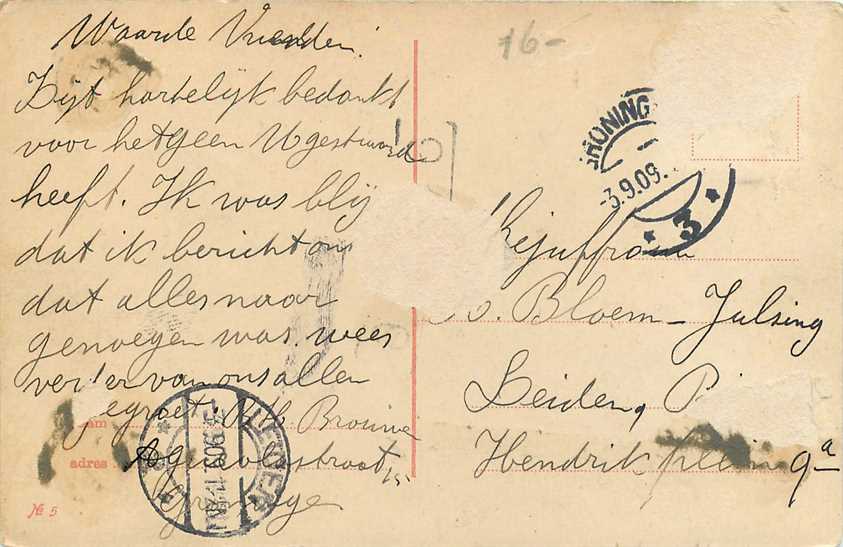 Waarde Vrienden.
Zijt hartelijk bedankt
voor hetgeen U gestuurd
heeft. Ik was blij
dat ik bericht
dat alles naar
genoegen was. wees
verder van ons allen
gegroet.
am
adres
Groninge
№ 5
16-
GRONING
-3.9.09.
* 3 *
Mejuffrouw
Bloem-Julsing
Leiden,
Hendrik plein 9a
LEIDEN